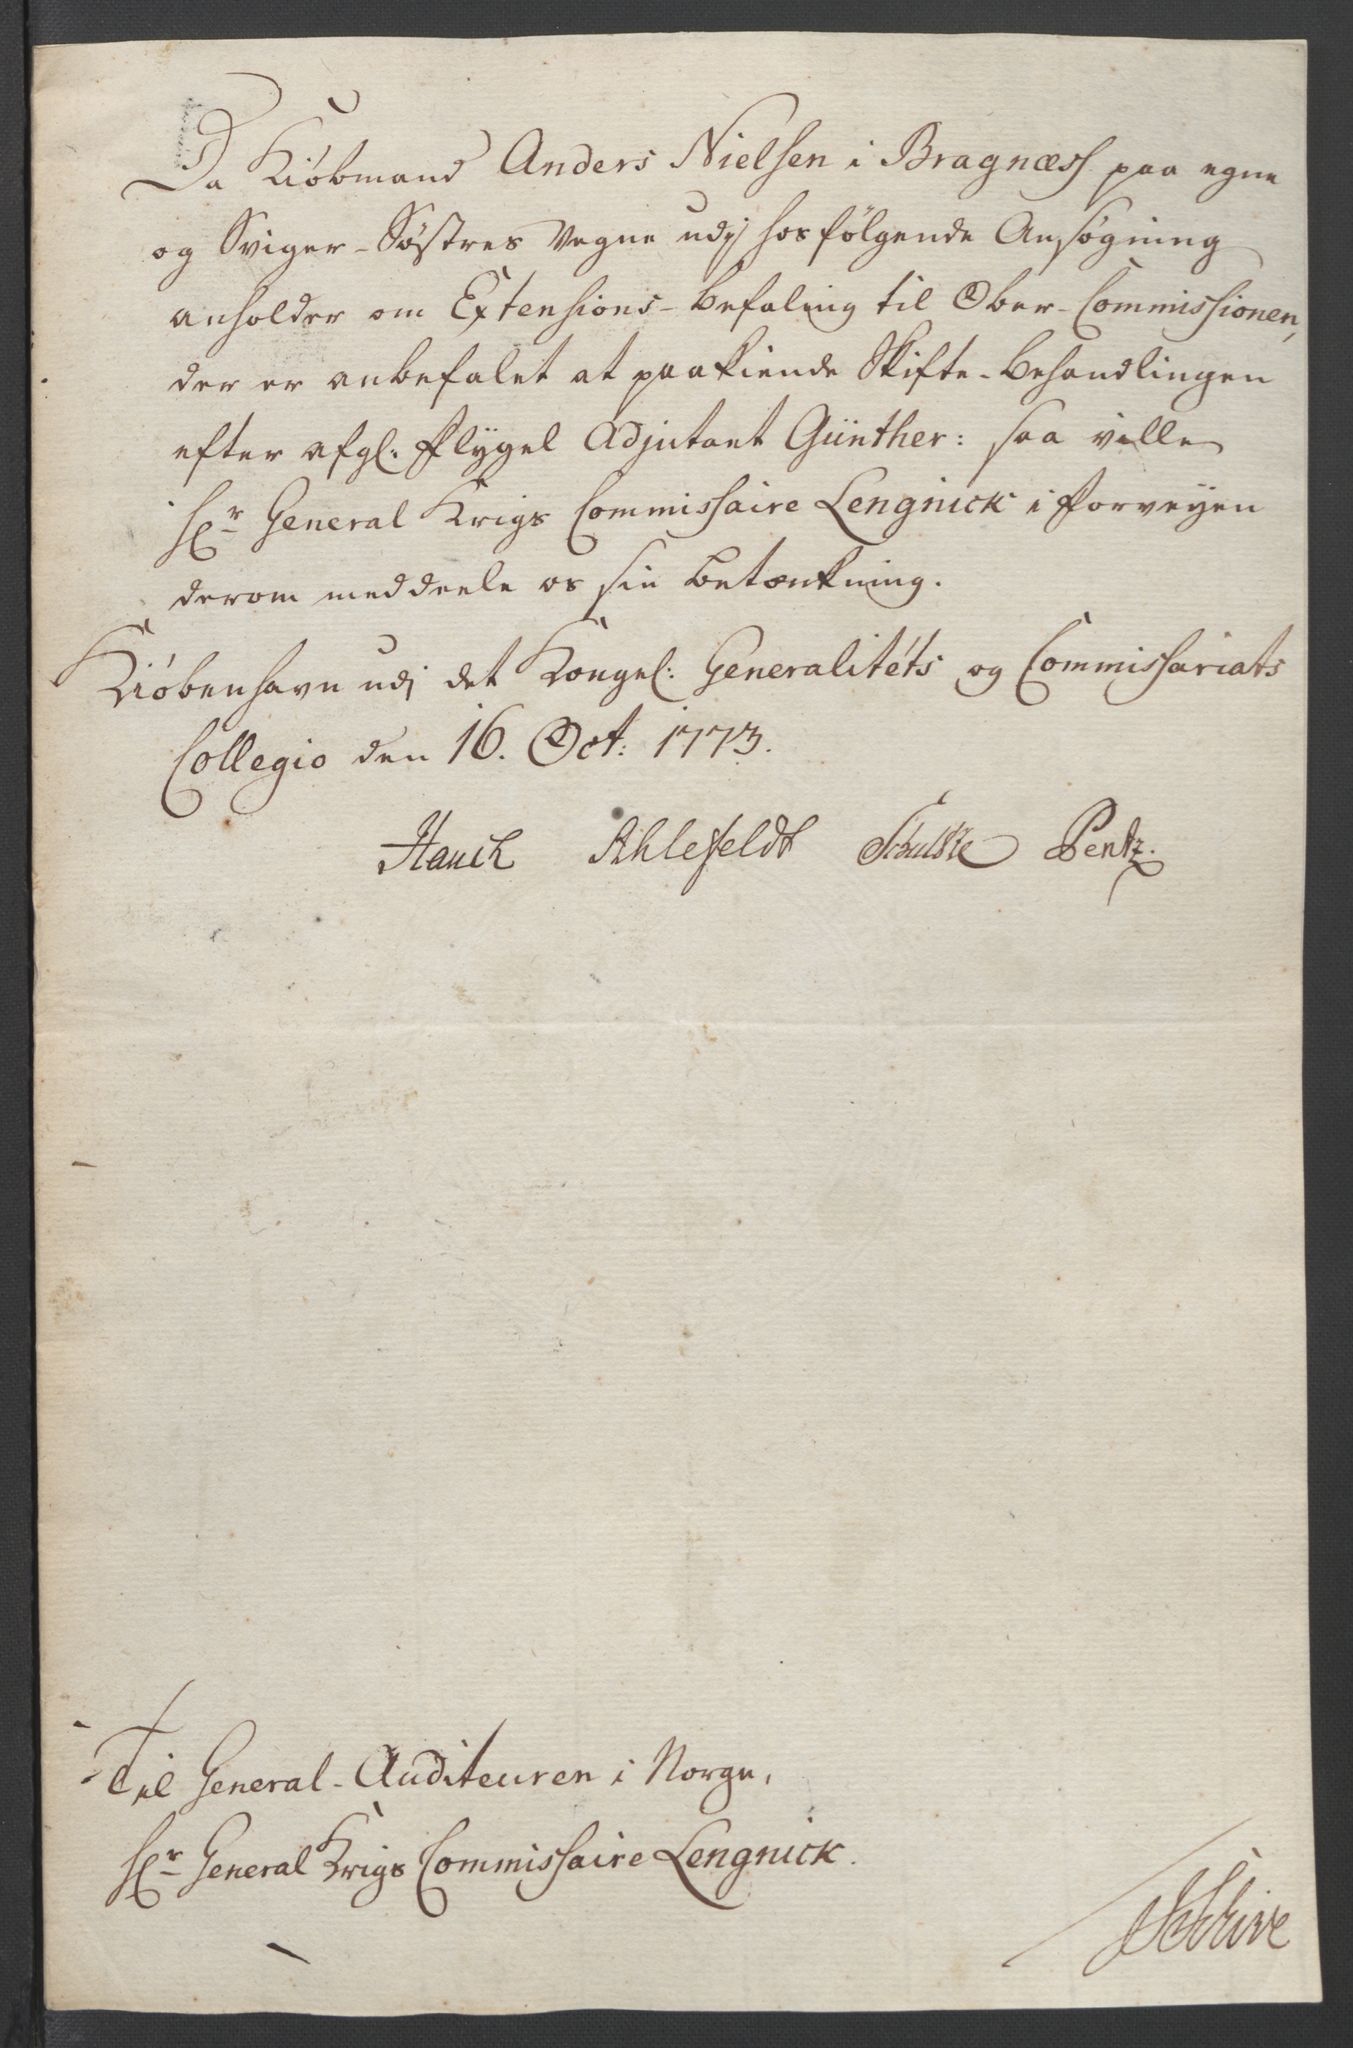 Da Kiöbmand Anders Nielsen i Bragnæss paa egne
og Sviger-Söstres Vegne udj hosfölgende Ansögning
anholder om Extensions-Befaling til Ober-Commissionen,
der er anbefalet at paakiende Skifte-Behandlingen
efter afgl. Flygel Adjutant Günther: saa ville
Hr General Krigs Commissaire Lengnick i Forveyen
derom meddeele os sin Betænkning.
Kiöbenhavn udj det Kongel: Generalitéts og Commissariats
Collegio den 16. Oct: 1773.
Hauch Ahlefeldt Schultze Pentz.
Til General-Auditeuren i Norge,
Hr General Krigs Commissaire Lengnick.